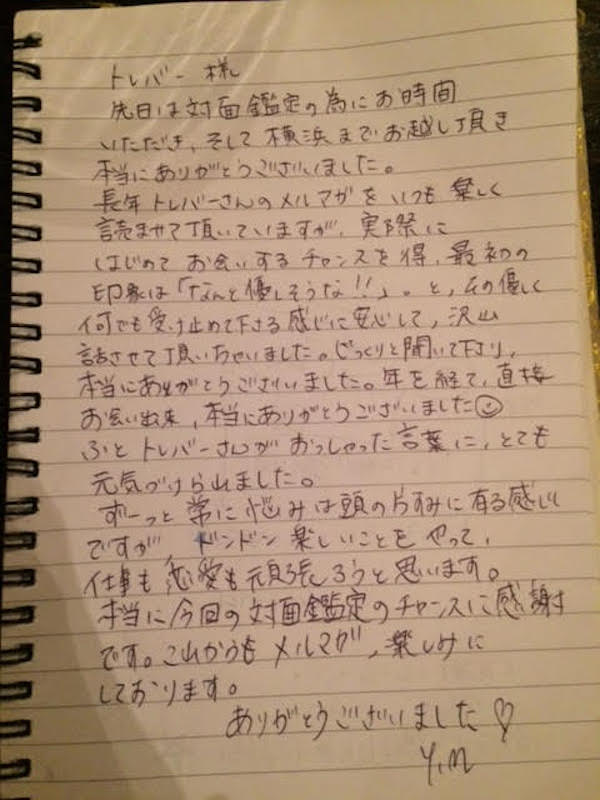 トレバー 様
先日は対面鑑定の為にお時間
いただき、そして横浜までお越し頂き
本当にありがとうございました。
長年トレバーさんのメルマガをいつも楽しく
読ませて頂いていますが、実際に
はじめてお会いするチャンスを得、最初の
印象は「なんと優しそうな!!」。と、その優しく
何でも受け止めて下さる感じに安心して、沢山
話させて頂いちゃいました。じっくりと聞いて下さり、
本当にありがとうございました。年を経て、直接
お会い出来、本当にありがとうございました☺
ふとトレバーさんがおっしゃった言葉に、とても
元気づけられました。
ずーっと常に悩みは頭の片すみに有る感じ
ですが ドンドン楽しいことをやって、
仕事も恋愛も頑張ろうと思います。
本当に今回の対面鑑定のチャンスに感謝
です。これからもメルマガ、楽しみに
しております。
ありがとうございました♡
Y.M